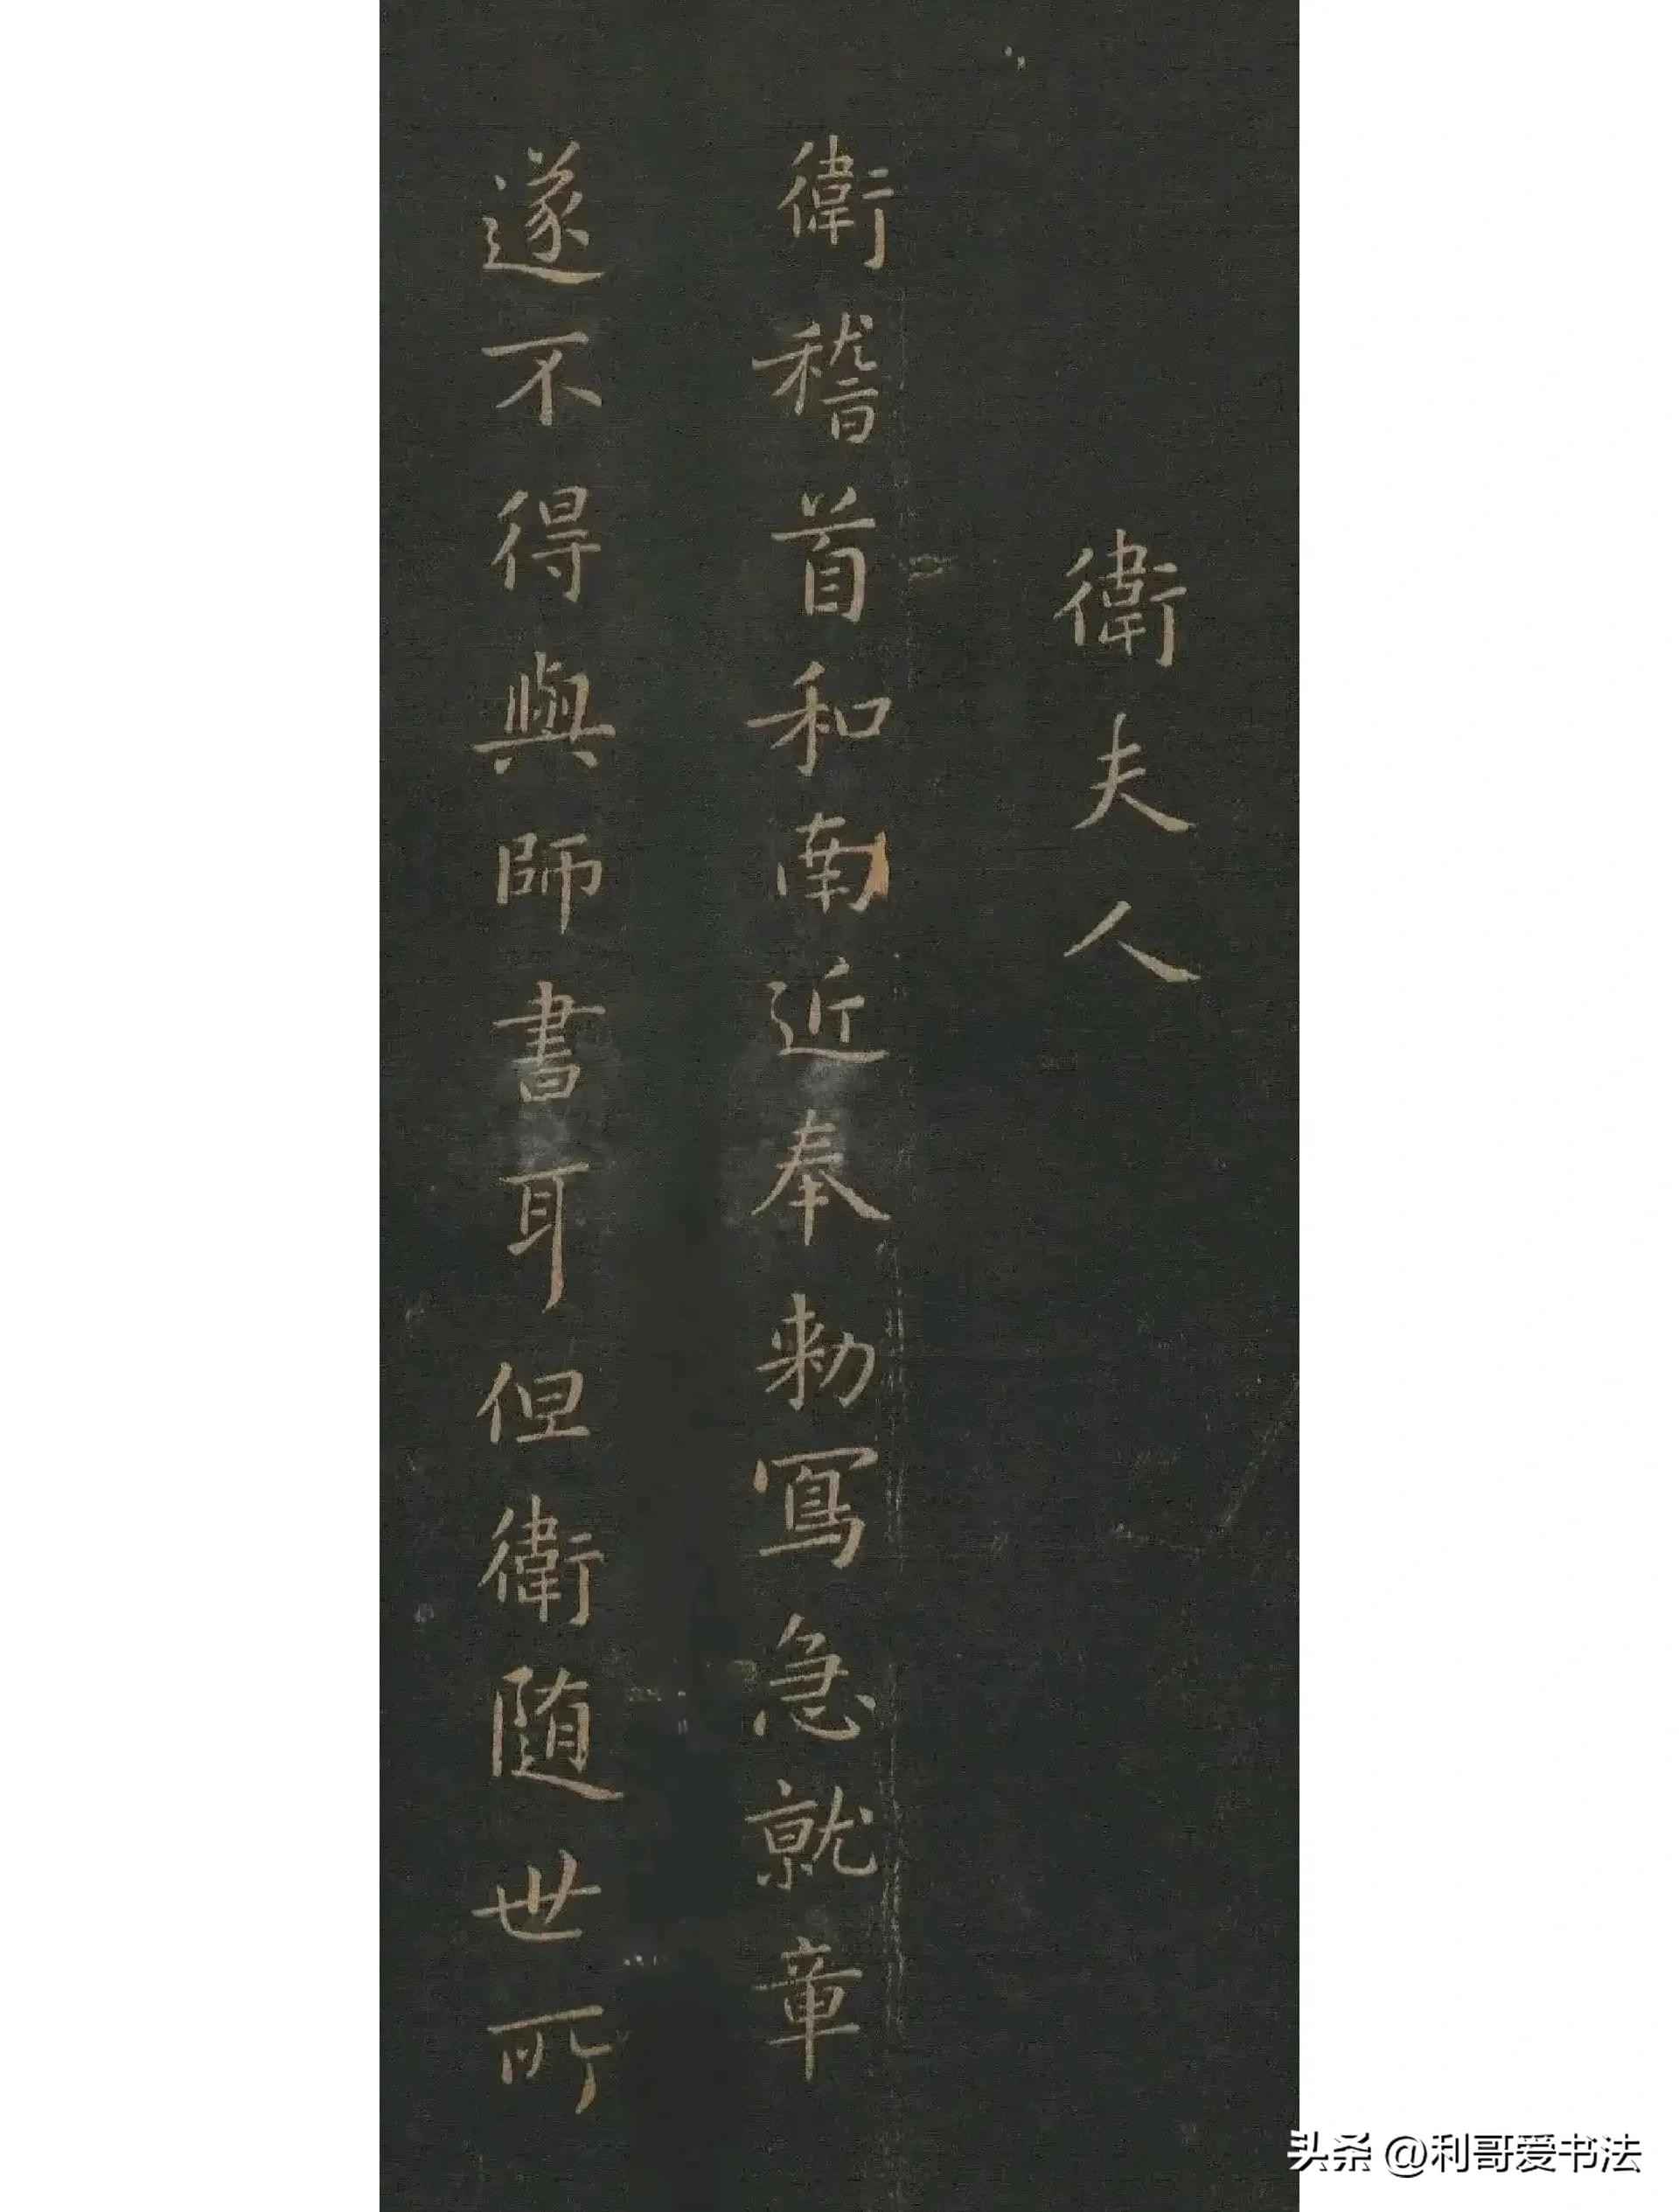 衛夫人
衛稽首和南近奉勑寫急就章
遂不得與師書耳但衛随世所
头条 @利哥爱书法